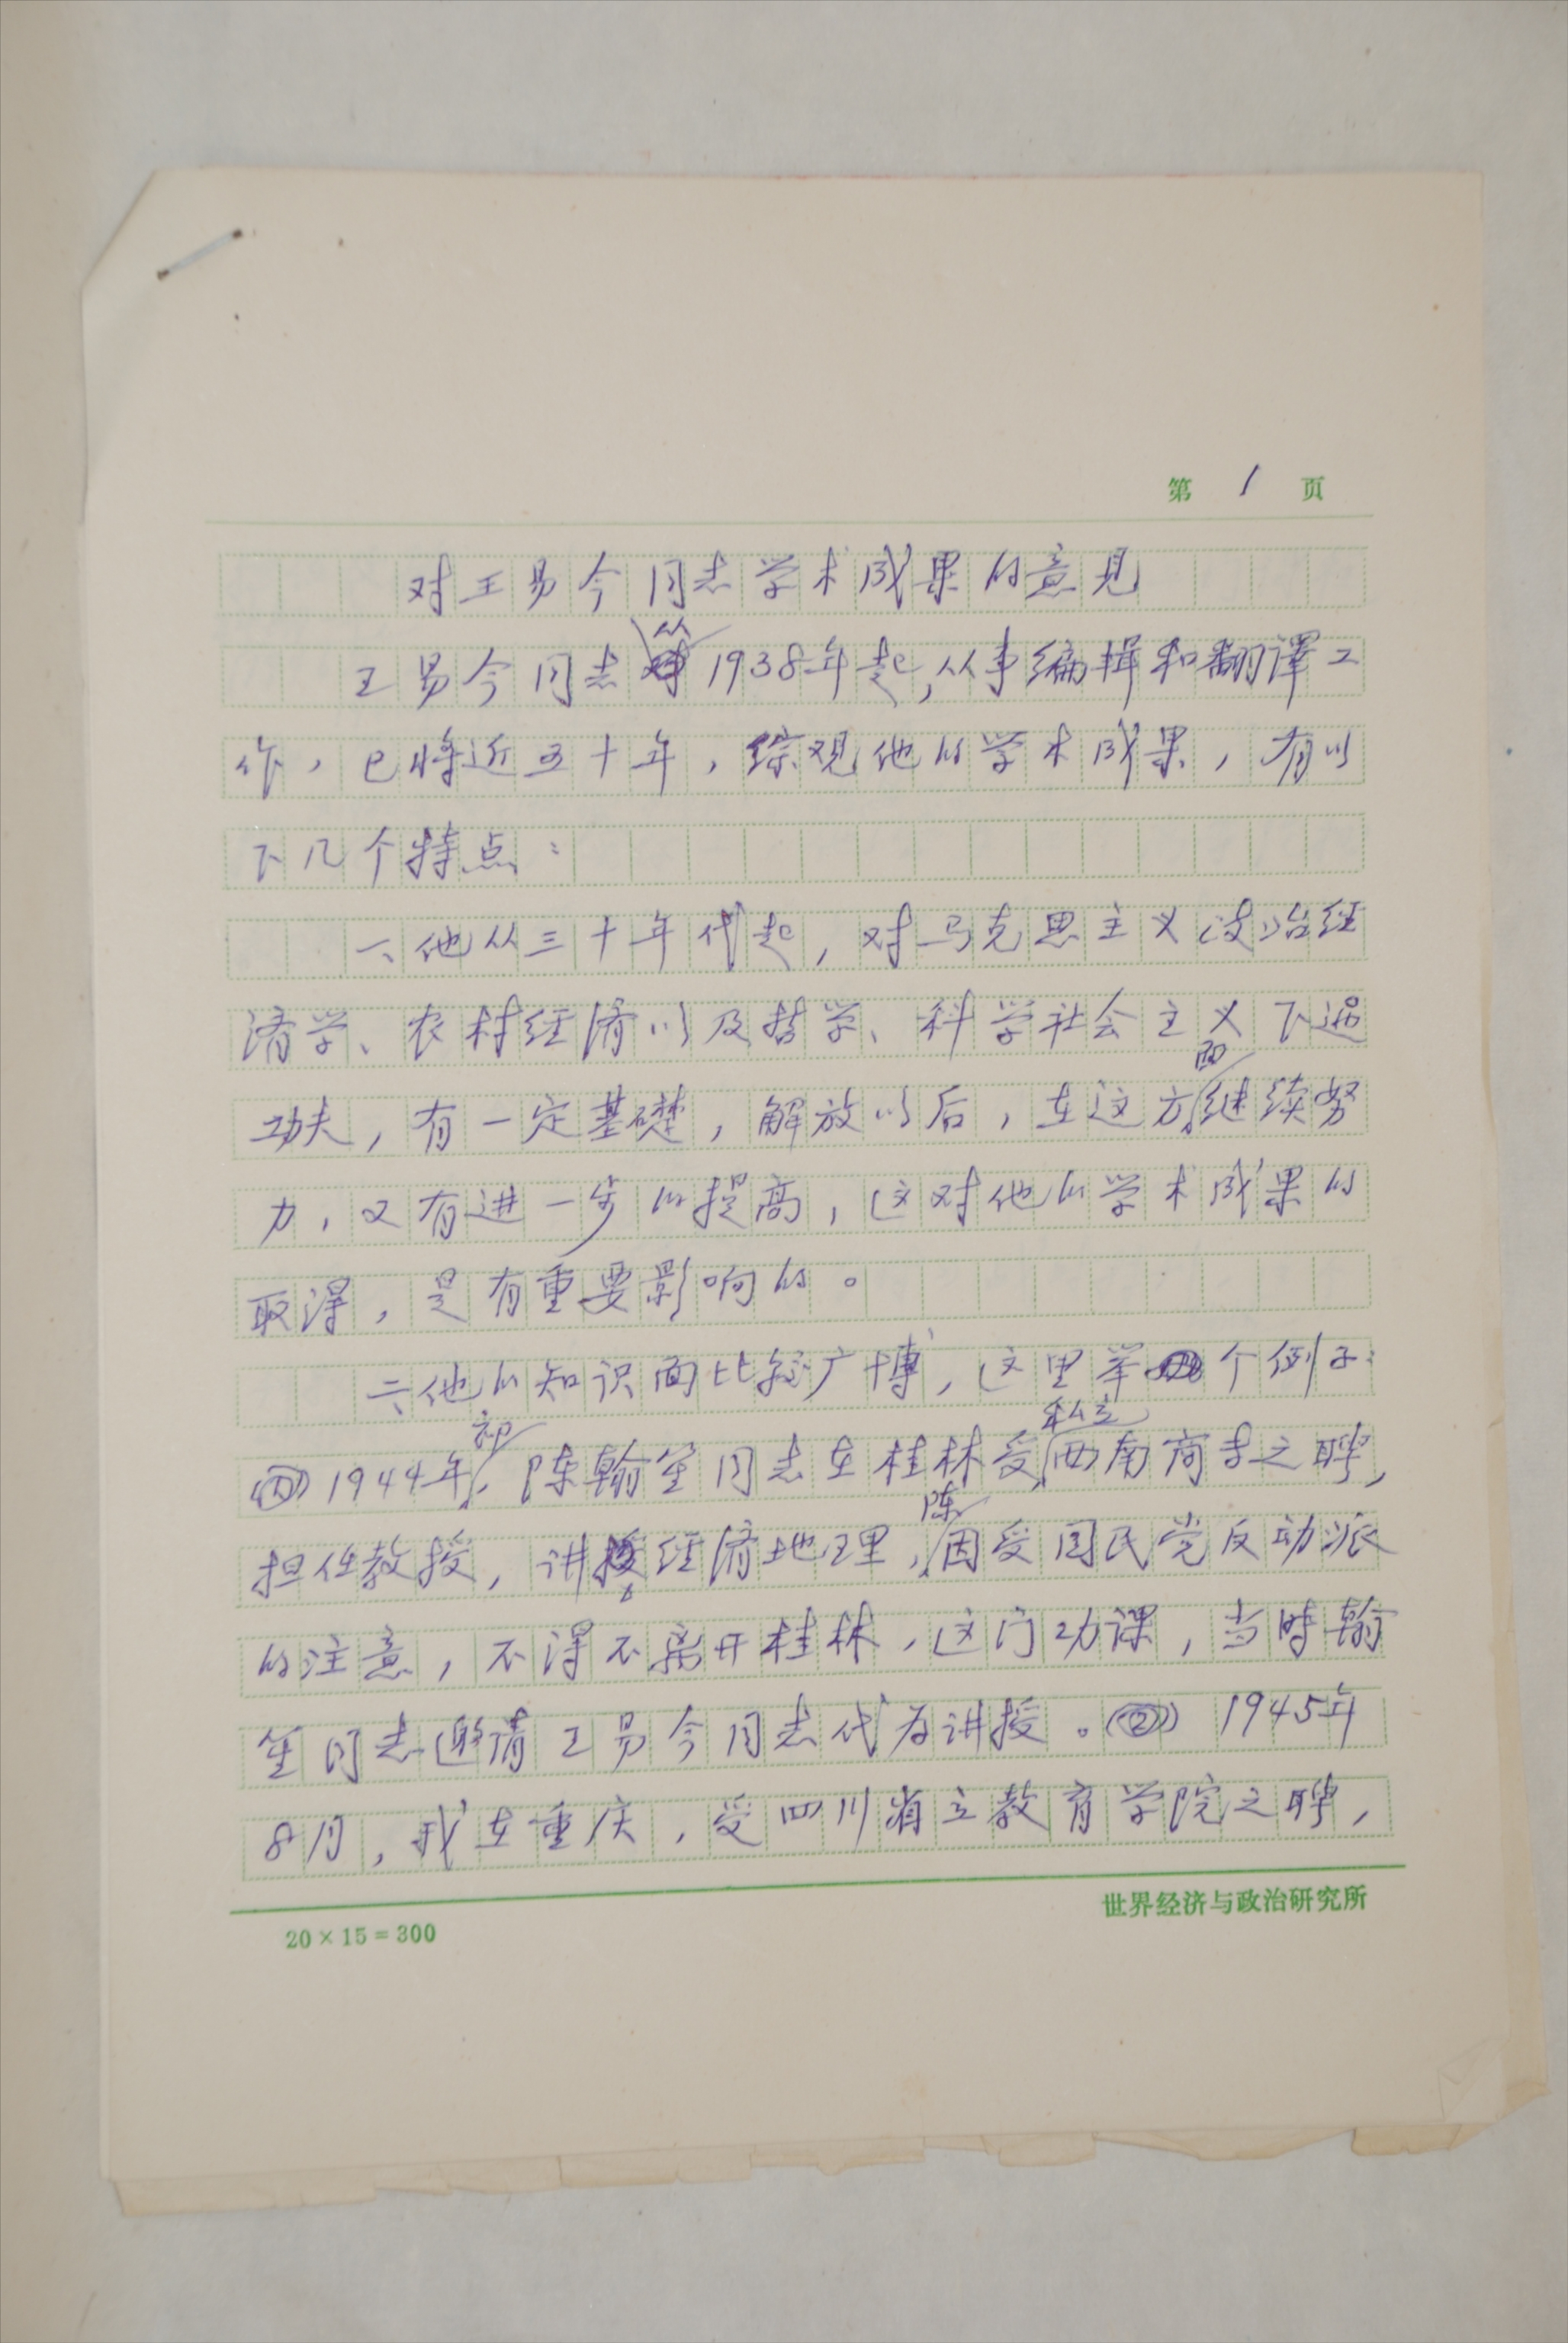 第 1 页
对王易今同志学术成果的意见
王易今同志从1938年起,从事编辑和翻译工
作，已将近五十年，综观他的学术成果，有以
下几个特点：
一、他从三十年代起，对马克思主义政治经
济学、农村经济以及哲学、科学社会主义下过
功夫，有一定基礎，解放以后，在这方面继续努
力，又有进一步的提高，这对他的学术成果的
取得，是有重要影响的。
二、他的知识面比较广博，这里举个例子：
1944年初，陈翰笙同志在桂林受私立西南商专之聘，
担任教授，讲授经济地理，陈因受国民党反动派
的注意，不得不离开桂林，这门功课，当时翰
笙同志邀请王易今同志代为讲授。② 1945年
8月，我在重庆，受四川省立教育学院之聘，
20×15=300
世界经济与政治研究所